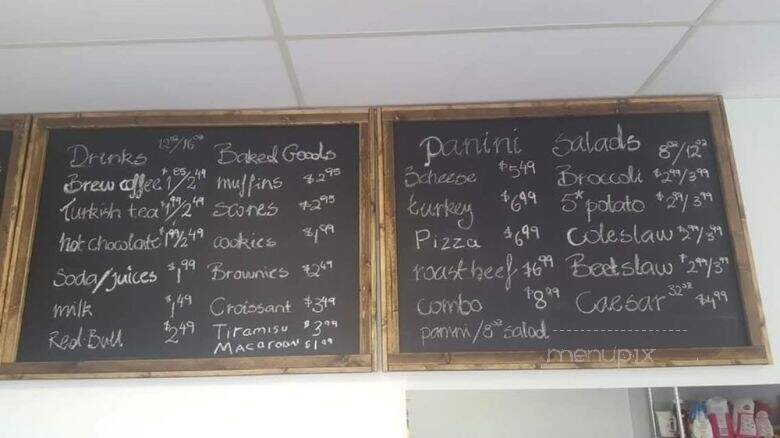 Drinks 12oz/16oz
Brew coffee $1.85/2.49
Turkish tea $1.99/2.49
hot chocolate $1.99/2.49
Soda/juices $1.99
milk $1.49
Red Bull $2.49
Baked Goods
muffins $2.95
scones $2.95
cookies $1.99
Brownies $2.49
Croissant $3.49
Tiramisu $3.99
Macaroon $1.99
Panini
3cheese $5.49
turkey $6.99
Pizza $6.99
roast beef $6.99
combo $8.99
panini/8oz salad
Salads 8oz/12oz
Broccoli $2.99/3.99
5* potato $2.99/3.99
Coleslaw $2.99/3.99
Beetslaw $2.99/3.99
Caesar 32oz $4.99
menupix